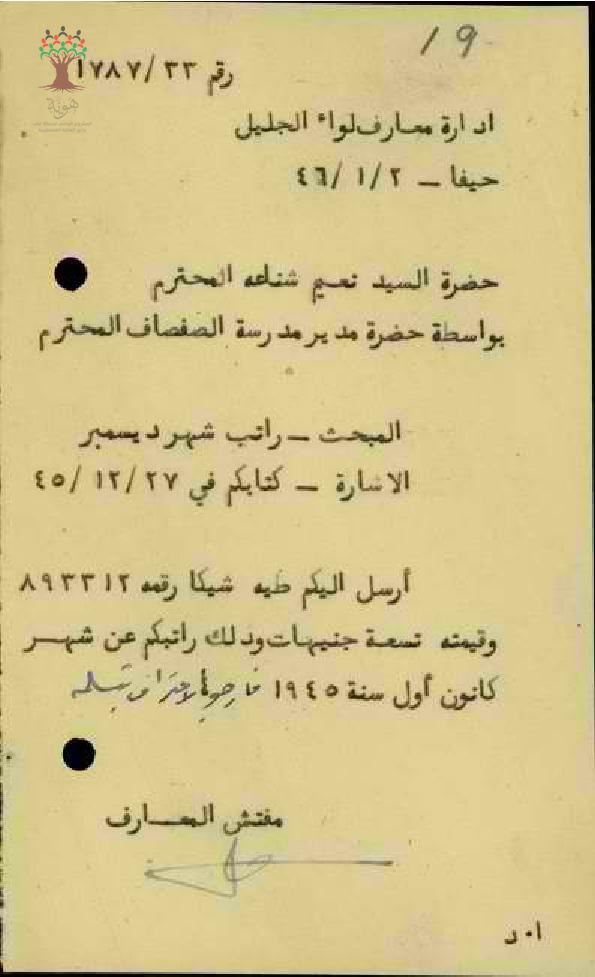 19
رقم ١٧٨٧/٣٣
هوية
ادارة معارف لواء الجليل
حيفا - ٤٦/١/٢
حضرة السيد نعيم شناعه المحترم
بواسطة حضرة مدير مدرسة الصفصاف المحترم
المبحث - راتب شهر ديسمبر
الاشارة - كتابكم في ٤٥/١٢/٢٧
أرسل اليكم طيه شيكا رقمه ٨٩٣٣١٢
وقيمته تسعة جنيهات وذلك راتبكم عن شهر
كانون أول سنة ١٩٤٥ فارجو الاعتراف بتسلمه
مفتش المعارف
ا٠د